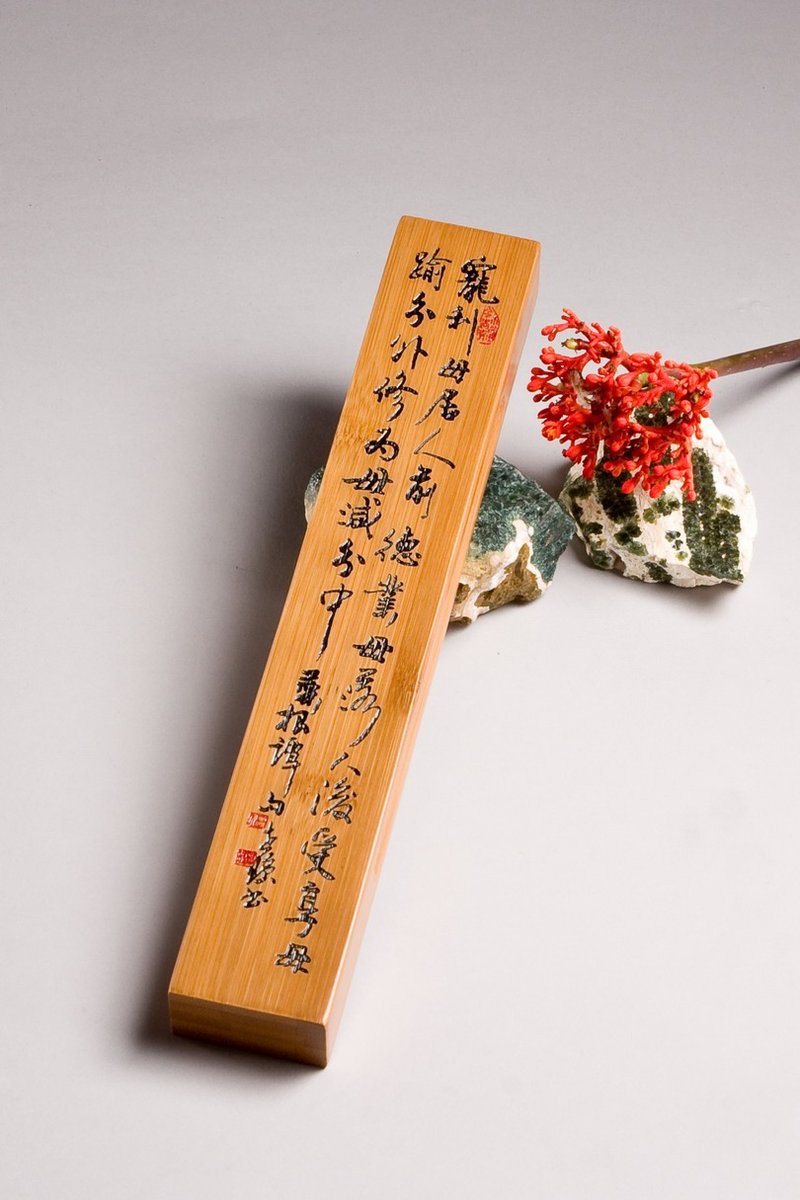 寵利毋居人前德業毋落人後受享毋
踰分外修為毋減分中
菜根譚句
書